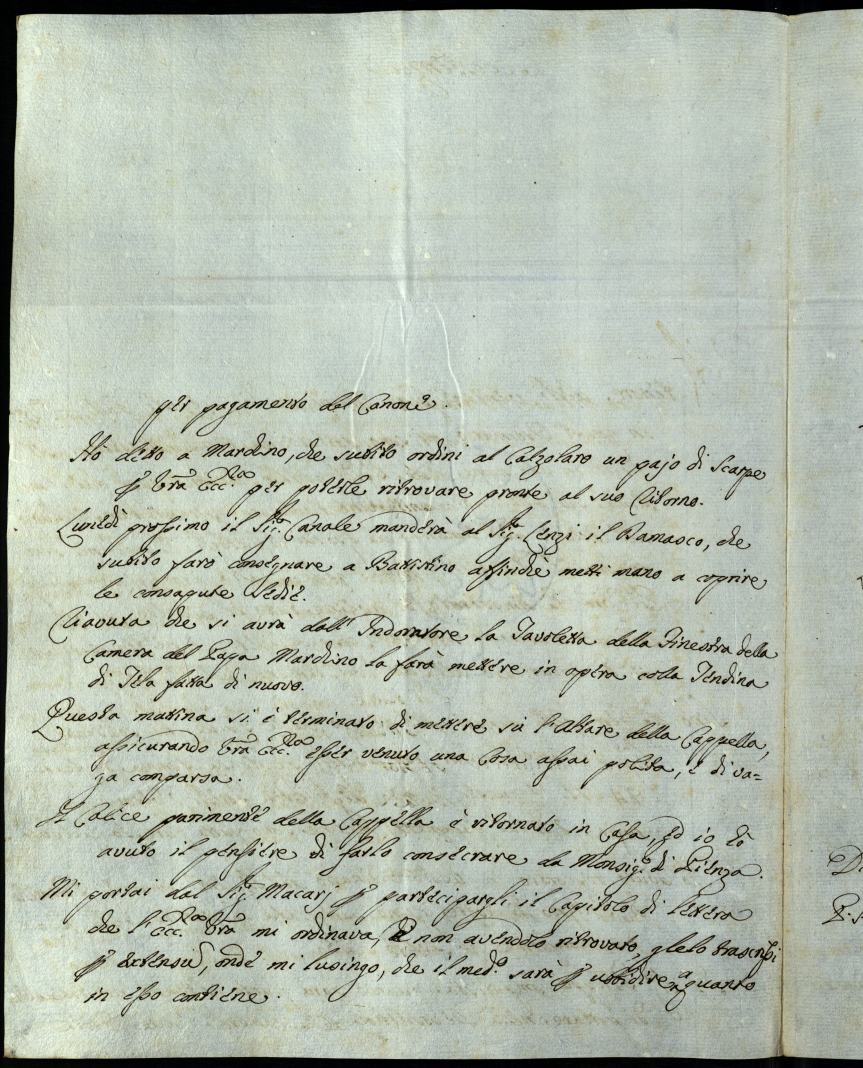 per pagamento del Canone.
Hò detto a Mardino, che subito ordini al Calzolaro un pajo di Scarpe
p̱ Vrā Ecc.za per poterle ritrovare pronte al suo Ritorno.
Lunedì prossimo il Sig.r Canale manderà al Sig.r Lenzi il Damasco, che
subito farò consegnare a Battistino affinchè metti mano a coprire
le consapute Sedie.
Riavuta che si avrà dall'Indoratore la Tavoletta della Finestra della
Camera del Papa Mardino la farà mettere in opera colla Tendina
di Tela fatta di nuovo.
Questa mattina si è terminato di mettere sù l'Altare della Cappella,
assicurando Vrā Ecc.za esser venuto una Cosa assai polita, e di va=
ga comparsa.
Il Calice parimente della Cappella è ritornato in Casa, ed io hò
avuto il pensiere di farlo consecrare da Monsig.r di Pienza.
Mi portai dal Sig.r Macarj p̱ participargli il Capitolo di lettera
che l'Ecc.za Vrā mi ordinava, e non avendolo ritrovato, glielo trascrissi
p̱ extensū, onde mi lusingo, che il med.o sarà p̱ ubbidire a quanto
in esso contiene.
Di
P. S